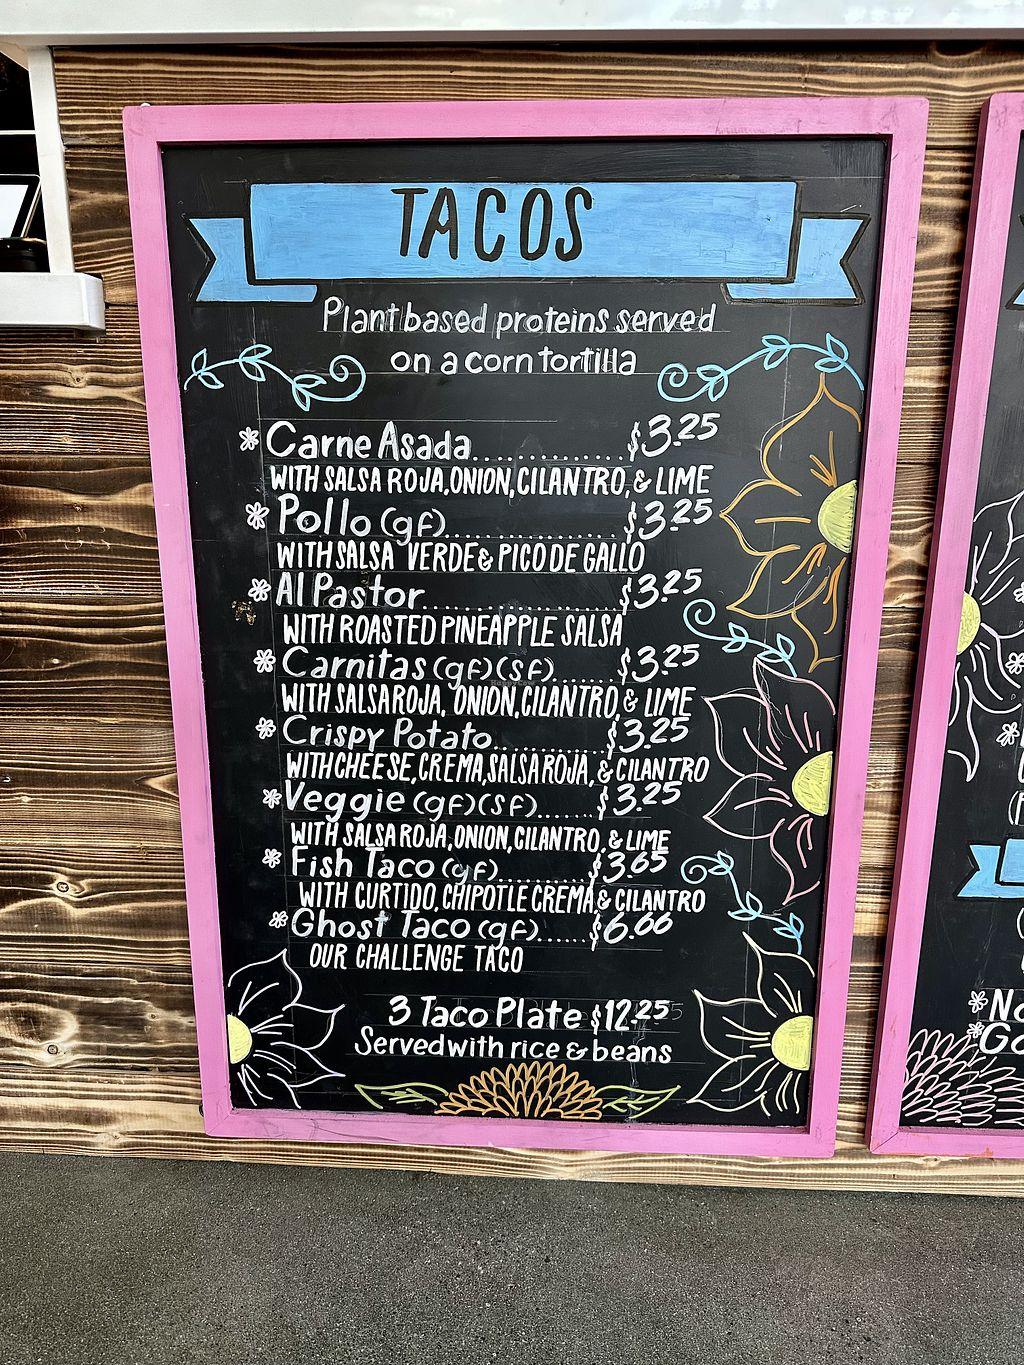 TACOS
Plant based proteins served
on a corn tortilla
Carne Asada..............$3.25
WITH SALSA ROJA, ONION, CILANTRO, & LIME
Pollo (gf)..................$3.25
WITH SALSA VERDE & PICO DE GALLO
Al Pastor....................$3.25
WITH ROASTED PINEAPPLE SALSA
Carnitas (gf)(sf).......$3.25
WITH SALSA ROJA, ONION, CILANTRO, & LIME
Crispy Potato............$3.25
WITH CHEESE, CREMA, SALSA ROJA, & CILANTRO
Veggie (gf)(sf).......$3.25
WITH SALSA ROJA, ONION, CILANTRO, & LIME
Fish Taco (gf)..........$3.65
WITH CURTIDO, CHIPOTLE CREMA & CILANTRO
Ghost Taco (gf)......$6.66
OUR CHALLENGE TACO
3 Taco Plate $12.25
Served with rice & beans